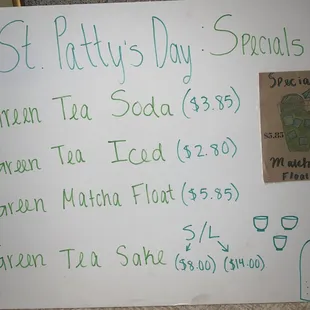 St. Patty's Day : Specials
Green Tea Soda ($3.85)
Green Tea Iced ($2.80)
Green Matcha Float ($5.85)
S/L
Green Tea Sake ($8.00) ($14.00)
Special
$5.85
Matcha
Float